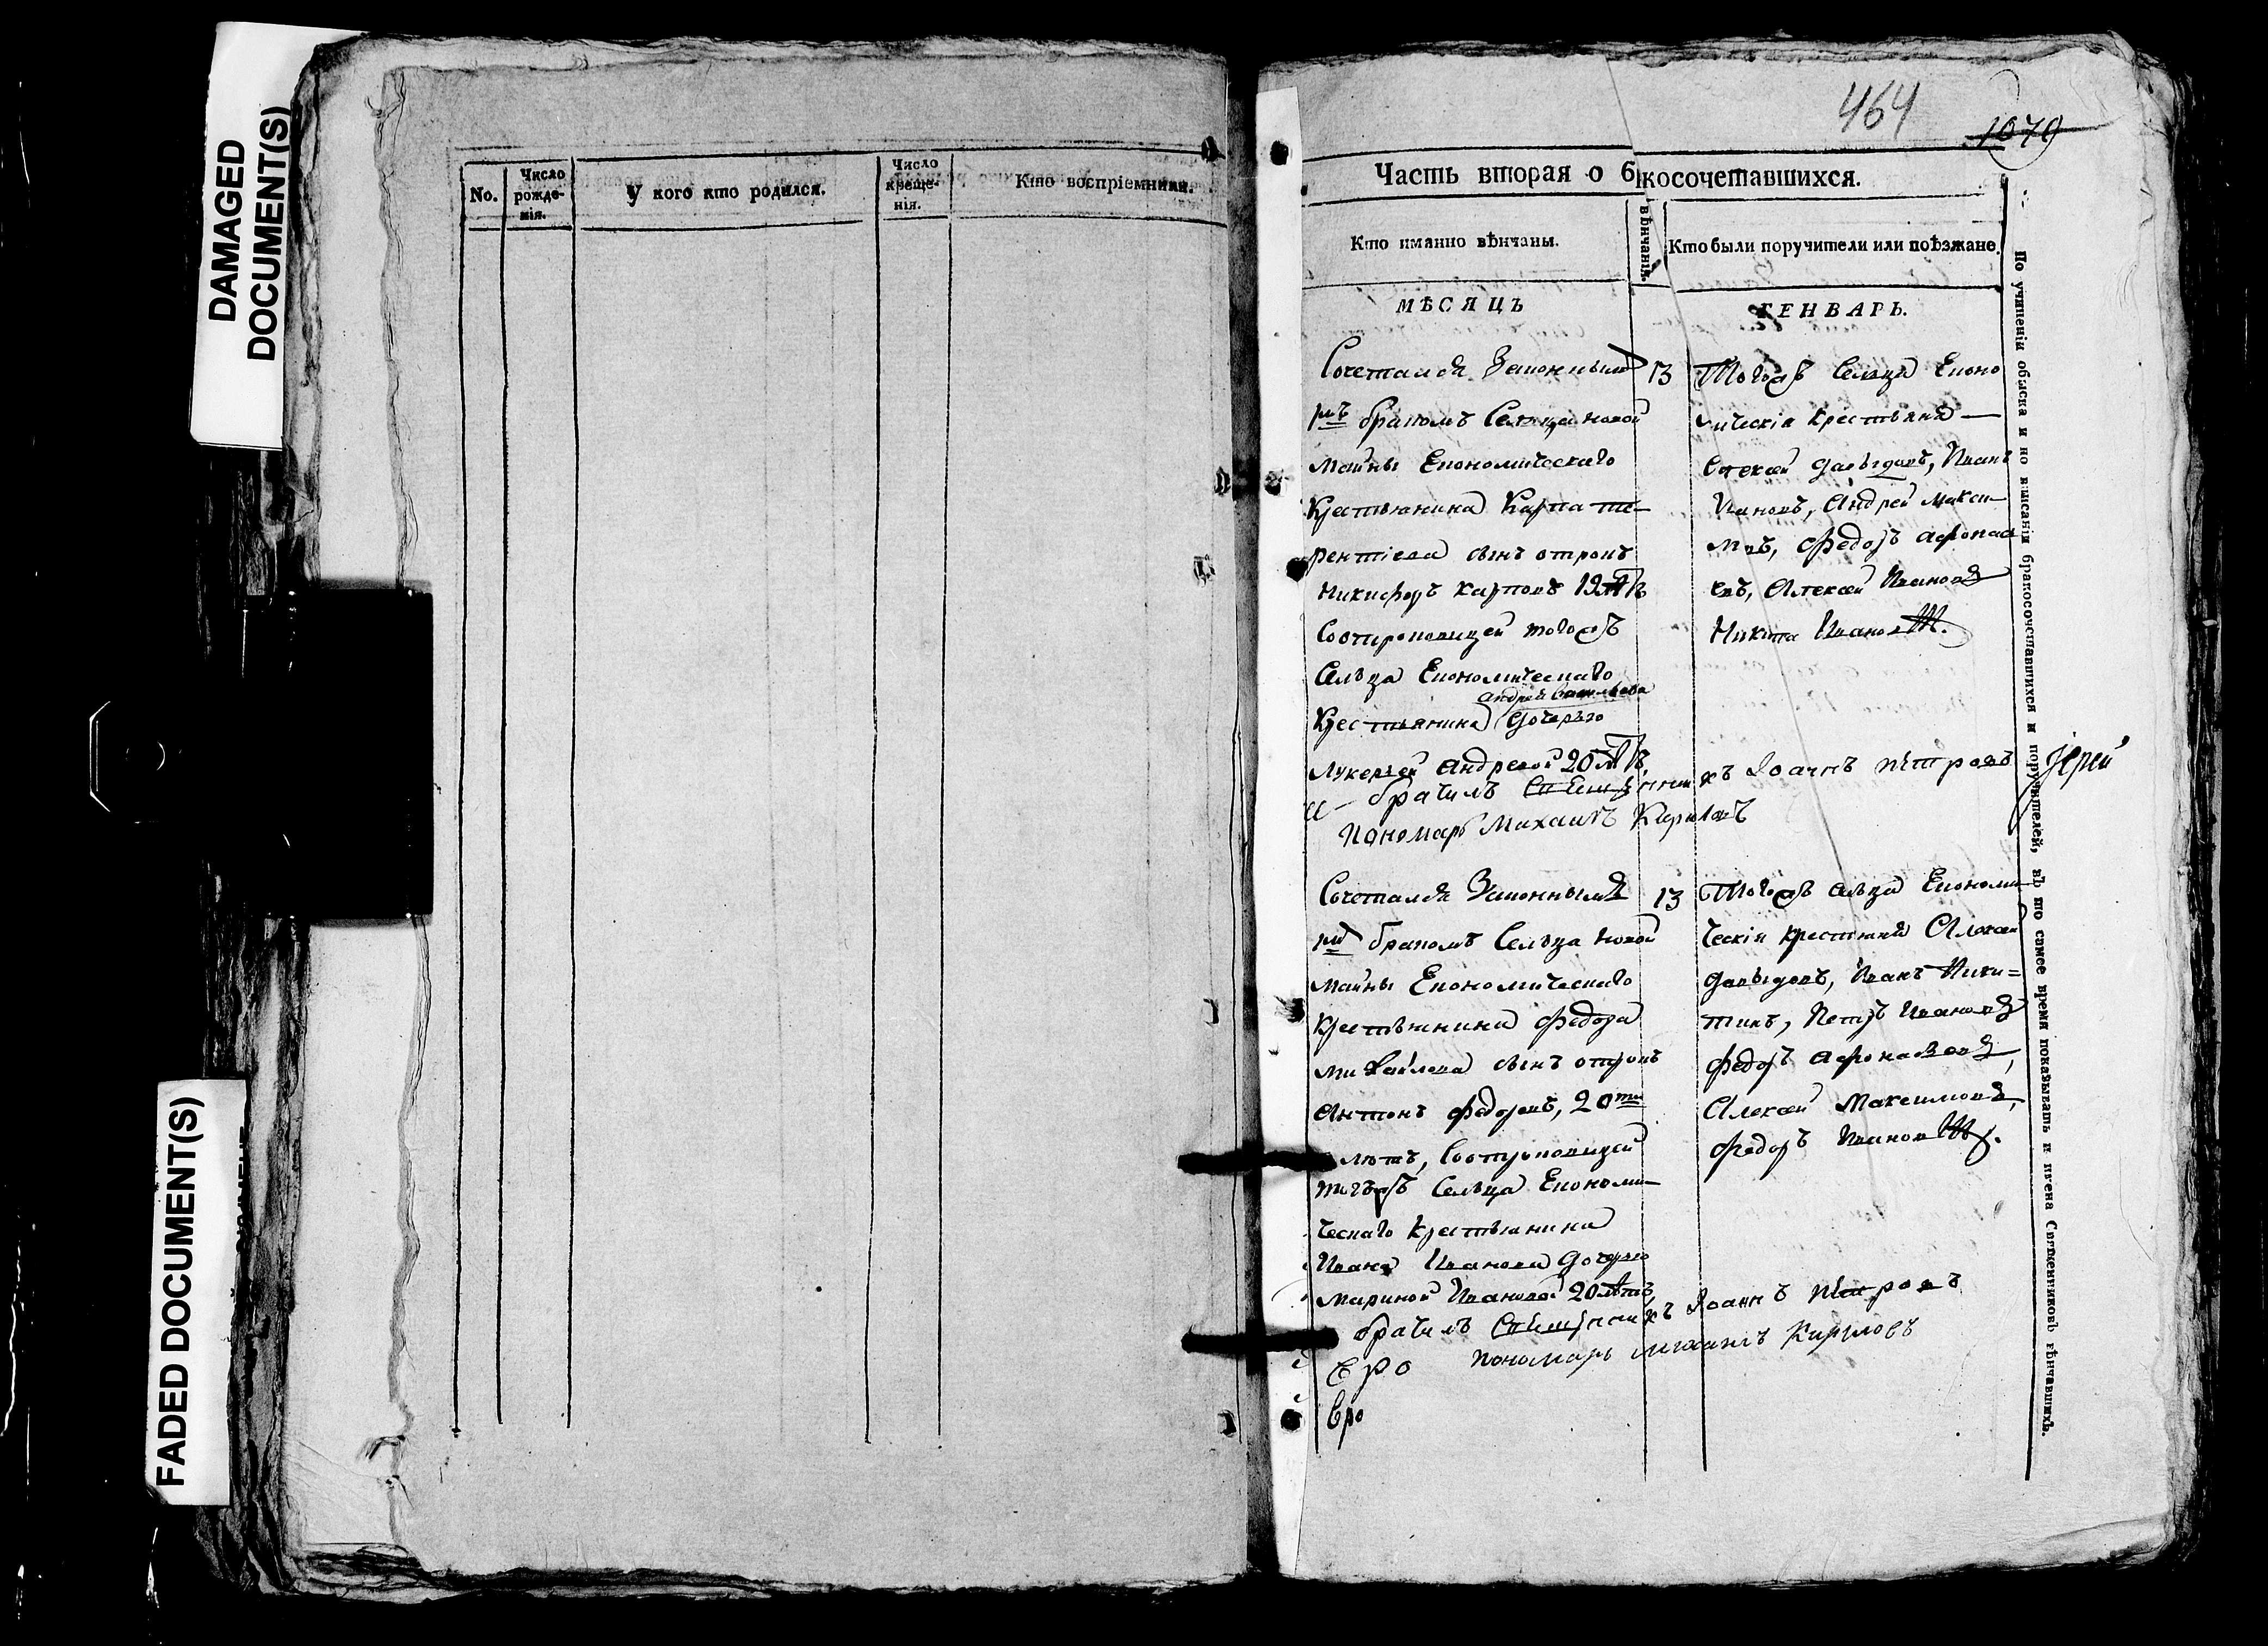 DAMAGED
DOCUMENT(S)
FADED DOCUMENT(S)
No.
Число
рожде-
нія.
У кого кто родился.
Число
креще-
нія.
Кто воспріемники.
464
1070
Часть вторая о б
косочетавшихся.
Кто иманно вѣнчаны.
вѣнчанія.
Кто были поручители или поѣзжане.
МѢСЯЦЪ
ГЕНВАРЬ.
Сочетался Законнымъ
бракомъ Сельца новой
майны Економическаго
Крестьянина Карпа те-
рентіева сынъ отрокъ
Никифоръ карповъ 19
Соотроковицей тогожъ
Сельца Економическаго
андрея васильева
Крестьянина дочерью
Лукерьей Андреевой 20
13
Тогожъ Сельца Еконо
мическія крестьяня
Алексей давыдовъ, Иванъ
Ивановъ, Андрей Макси-
мовъ, Федоръ афонась
евъ, Алексей Ивановъ
Никита Ивановъ.
брачилъ Священникъ Іоаннъ петровъ
Іерей
Пономарь Михаилъ Кириловъ
Сочетался Законнымъ
бракомъ Сельца новой
майны Економическаго
Крестьянина Федора
михайлова сынъ отрокъ
Антонъ федоровъ, 20ти
летъ, Соотроковицей
тогожъ Сельца Економи-
ческаго крестьянина
Ивана Иванова дочерью
Мариной Ивановой 20 летъ
13
Тогожъ сельца Економи-
ческія крестьяня Алексей
давыдовъ, Иванъ Ники=
тинъ, Петръ Ивановъ
федоръ афонасьевъ,
Алексей Максимовъ,
Федоръ Ивановъ.
брачилъ Священникъ Іоаннъ петровъ
пономарь михаилъ Кириловъ
Еро
Вро
По учиненіи обыска и по вписаніи бракосочетавшихся и поручителей, въ то самое время показывать и имена Священниковъ вѣнчавшихъ.